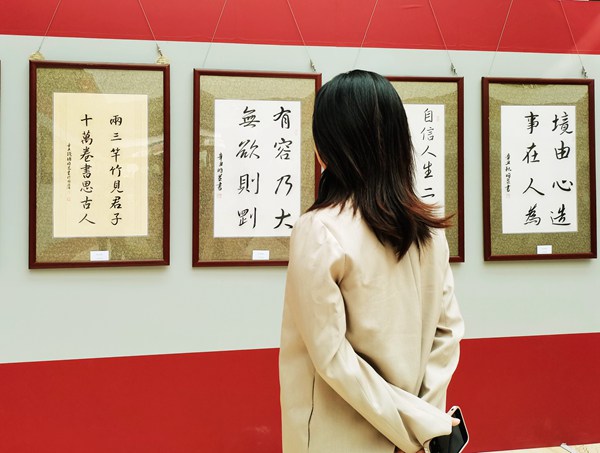 兩三竿竹見君子
十萬卷書思古人
有容乃大
無欲則剛
自信人生二
境由心造
事在人為